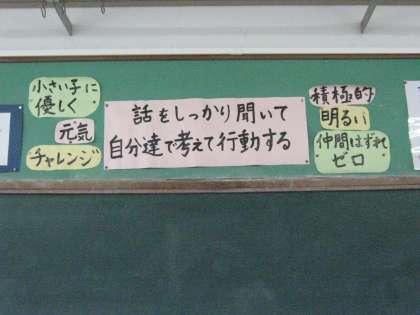 小さい子に
優しく
元気
チャレンジ
話をしっかり聞いて
自分達で考えて行動する
積極的
明るい
仲間はずれ
ゼロ